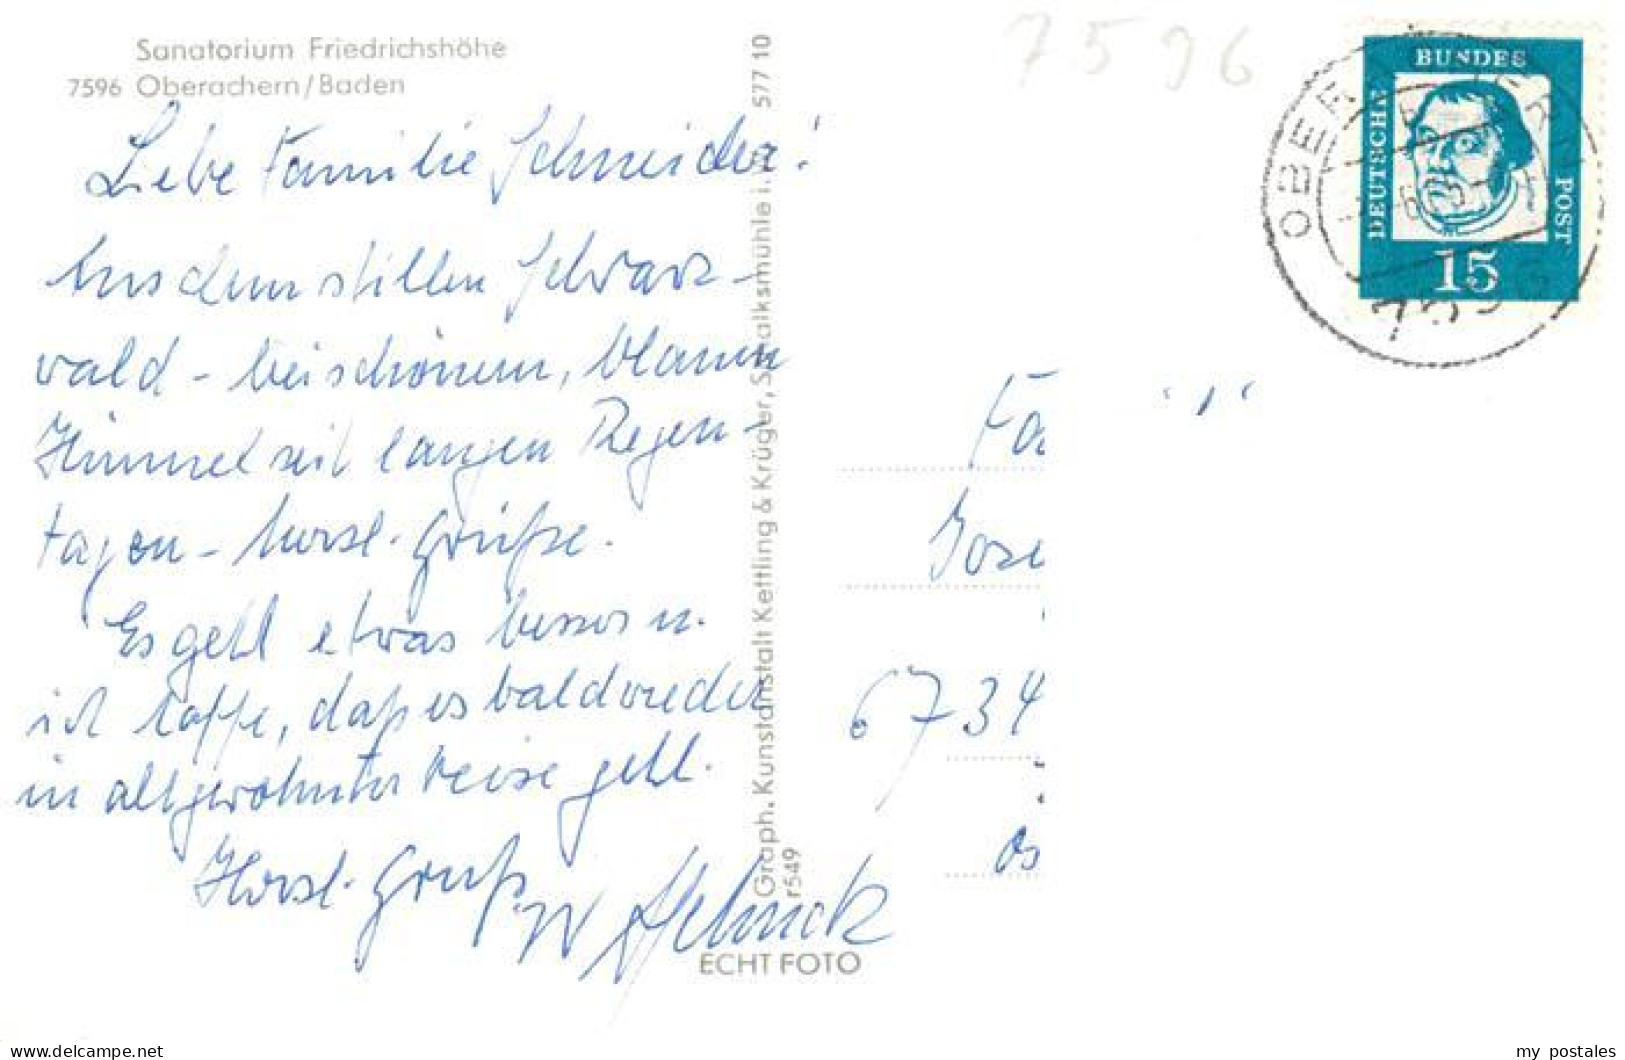 Sanatorium Friedrichshöhe
7596 Oberachern/Baden
7596
Liebe Familie Schneider!
Aus dem stillen Schwarz-
wald - bei schönem, blauem
Himmel seit langen Regen-
tagen - herzl. Grüße.
Es geht etwas besser u.
ich hoffe, daß es bald wieder
in altgewohnter Weise geht.
Herzl. Gruß
Graph. Kunstanstalt Kettling & Krüger, Schalksmühle i. W. 577 10
r549
ECHT FOTO
DEUTSCHE
BUNDES
POST
15
OBERACHERN
7596
Fa
6734
delcampe.net
my postales